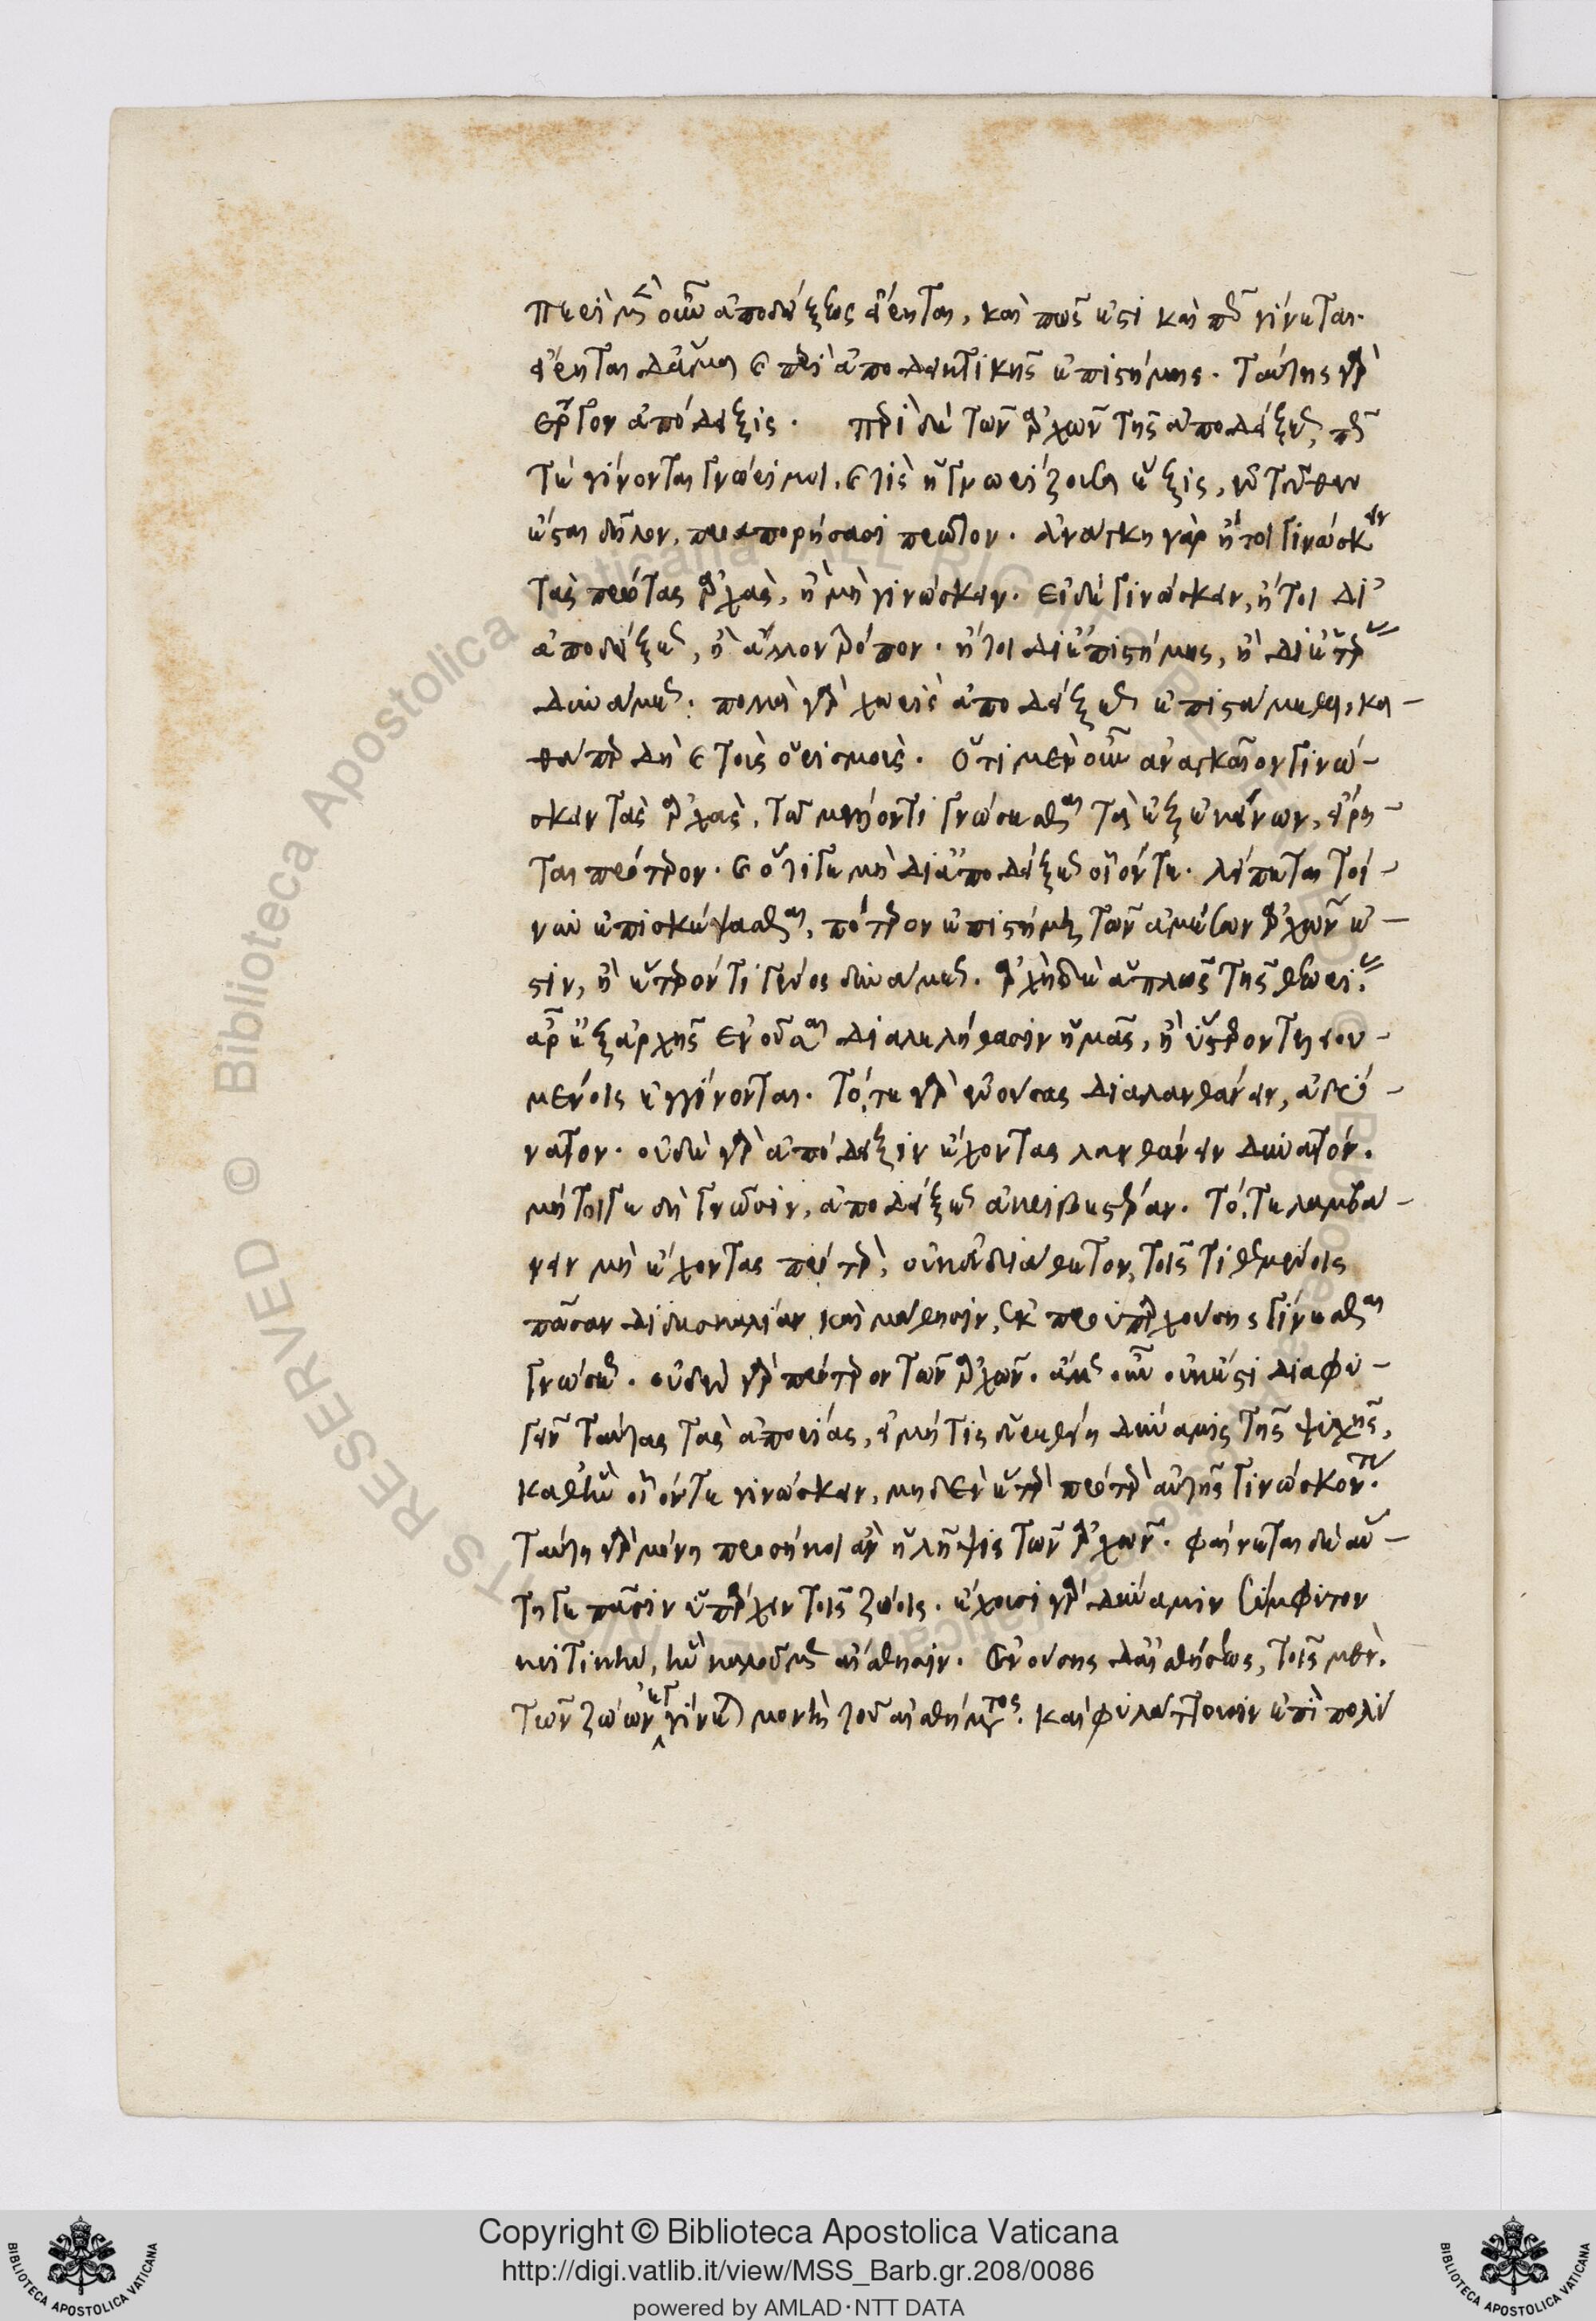 Περὶ μὲν οὖν ἀποδείξεως εἴρηται, καὶ πῶς ἐστὶ καὶ πῶς γίνεται.
εἴρηται δ' ἅμα καὶ περὶ ἀποδεικτικῆς ἐπιστήμης. ταύτης γὰρ
ἔργον ἀπόδειξις. περὶ δὲ τῶν ἀρχῶν τῆς ἀποδείξεως, πῶς
τε γίνονται γνώριμοι, καὶ τίς ἡ γνωρίζουσα ἕξις, ἐντεῦθεν
ἔσται δῆλον, προαπορήσασι πρῶτον. ἀνάγκη γὰρ ἤτοι γινώσκειν
τὰς πρώτας ἀρχὰς, ἢ μὴ γινώσκειν. εἰ δὲ γινώσκειν, ἤτοι δι'
ἀποδείξεως, ἢ ἄλλον τρόπον. ἤτοι δι' ἐπιστήμης, ἢ δι' ἑτέρας
δυνάμεως. πολλὰ γὰρ χωρὶς ἀποδείξεως ἐπιστάμεθα, κα-
θάπερ δὴ καὶ τοὺς ὁρισμούς. Ὅτι μὲν οὖν ἀναγκαῖον γινώ-
σκειν τὰς ἀρχὰς, τῷ μέλλοντι γνώσεσθαι τὰ ἐξ ἐκείνων, εἴρη-
ται πρότερον. καὶ ὅτι γε μὴ δι' ἀποδείξεως οἷόν τε. λείπεται τοί-
νυν ἐπισκέψασθαι, πότερον ἐπιστήμη τῶν ἀμέσων ἀρχῶν ἐ-
στιν, ἢ ἕτερόν τι γένος δυνάμεως. ἀρχὴ δὲ ἁπλῶς τῆς θεωρίας.
ἆρ' ἐξ ἀρχῆς ἐνοῦσαι διαλελήθασιν ἡμᾶς, ἢ ὕστερον τελειου-
μένοις ἐγγίνονται. τό, τε γὰρ ἐνούσας διαλανθάνειν, ἀδύ-
νατον. οὐδὲ γὰρ ἀπόδειξιν ἔχοντας λανθάνειν δυνατόν.
μήτοιγε δὴ γνῶσιν, ἀποδείξεως ἀκριβεστέραν. τό, τε λαμβά-
νειν μὴ ἔχοντας πρότερον, οὐκ ἀδιάθετον, τοῖς τιθεμένοις
πᾶσαν διδασκαλίαν καὶ μάθησιν, ἐκ προϋπαρχούσης γίνεσθαι
γνώσεως. οὐδὲν γὰρ πρότερον τῶν ἀρχῶν. ἄλλως οὖν οὐκ ἔστι διαφυ-
γεῖν ταύτας τὰς ἀπορίας, εἰ μή τις εὑρεθείη δύναμις τῆς ψυχῆς,
καθ' ἣν οἷόν τε γινώσκειν, μηδὲν ἕτερον πρότερον αὐτῆς γινώσκοντι.
ταύτῃ γὰρ μόνῃ προσήκοι ἂν ἡ λῆψις τῶν ἀρχῶν. φαίνεται δὲ αὕ-
τη γε πᾶσιν ὑπάρχειν τοῖς ζώοις. ἔχουσι γὰρ δύναμιν σύμφυτον
κριτικὴν, ἣν καλοῦμεν αἴσθησιν. ἐνούσης δ' αἰσθήσεως, τοῖς μὲν
τῶν ζώων ἐγγίνεται μονὴ τοῦ αἰσθήματος. καὶ φυλάττουσιν ἐπὶ πολὺ
Copyright © Biblioteca Apostolica Vaticana
http://digi.vatlib.it/view/MSS_Barb.gr.208/0086
powered by AMLAD·NTT DATA